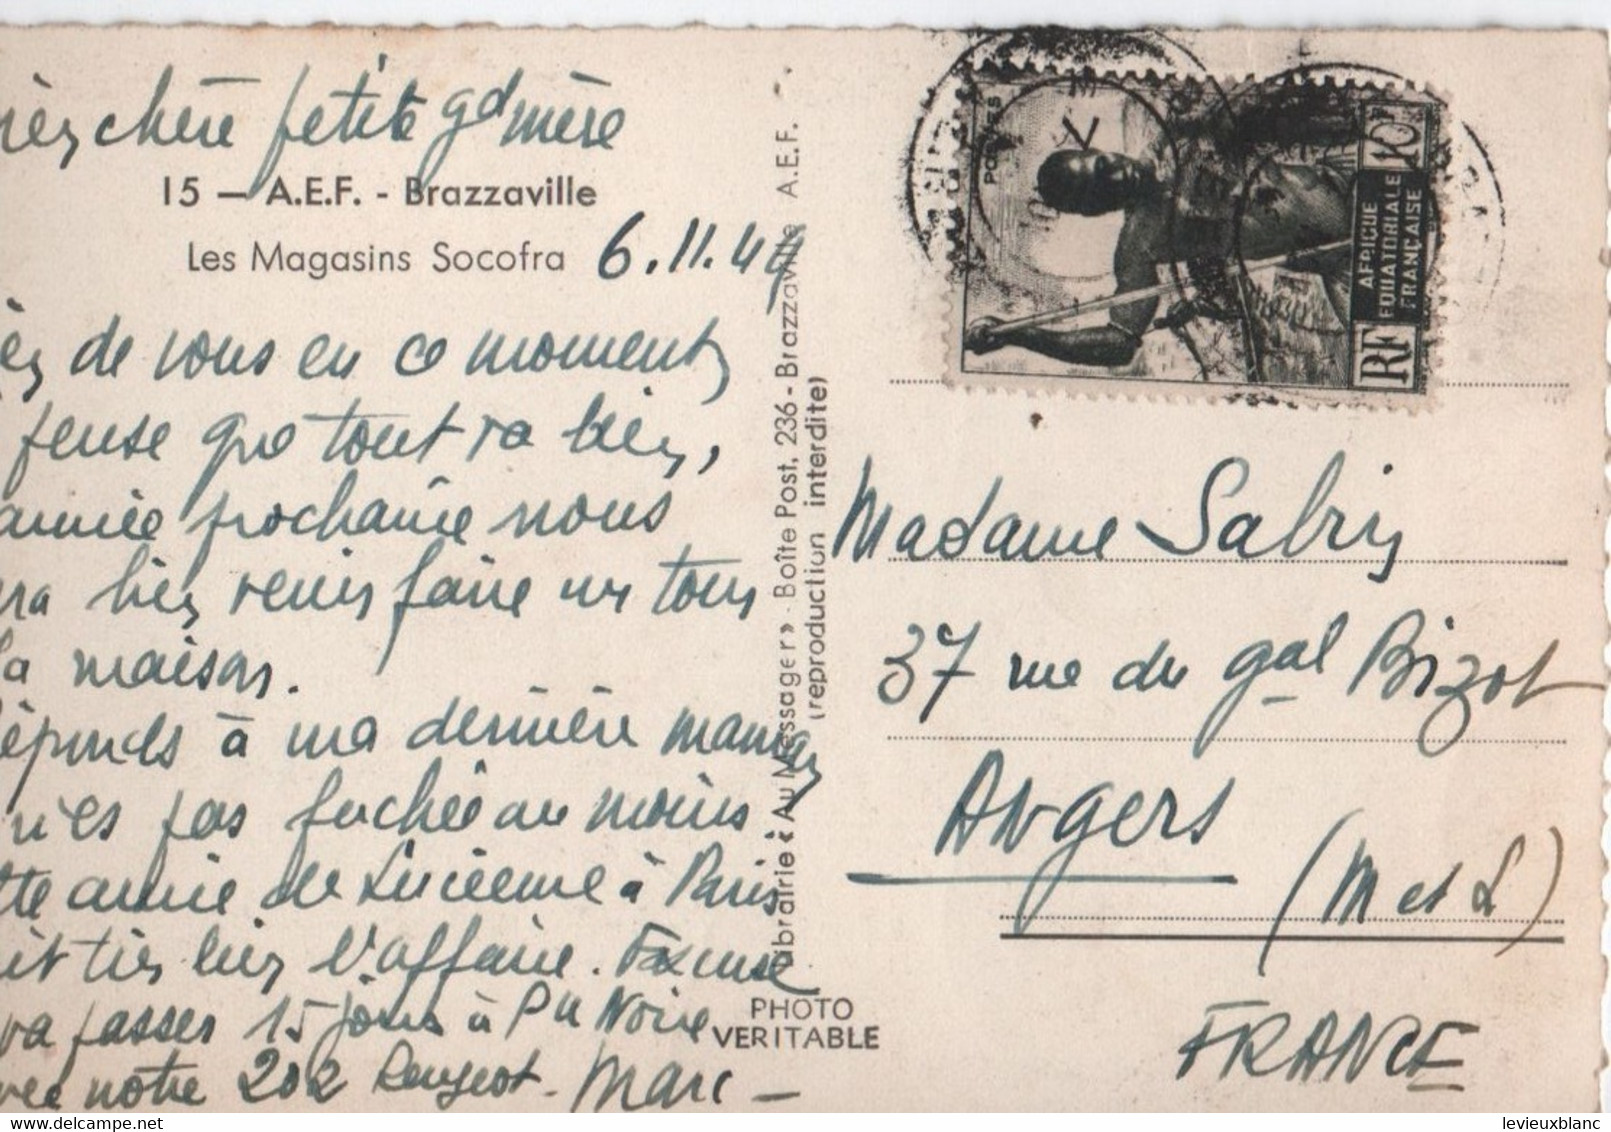 chère petite gd mère
15 — A.E.F. - Brazzaville
Les Magasins Socofra 6.11.49
de vous en ce moment
pense que tout va bien,
année prochaine nous
bien venir faire un tour
la maison.
réponds à ma dernière maman
n'es pas fachée au moins
amie de Lucienne à Paris
bien l'affaire.
va passer 15 jours à Pte Noire
avec notre 202 Peugeot. Marc —
Librairie « Au Messager » - Boîte Post, 236 - Brazzaville A.E.F.
(reproduction interdite)
PHOTO
VERITABLE
POSTES
10F
AFRIQUE
EQUATORIALE
FRANÇAISE
RF
Madame Sabry
37 rue du gal Bizot
Angers
(M et L)
FRANCE
levieuxblanc